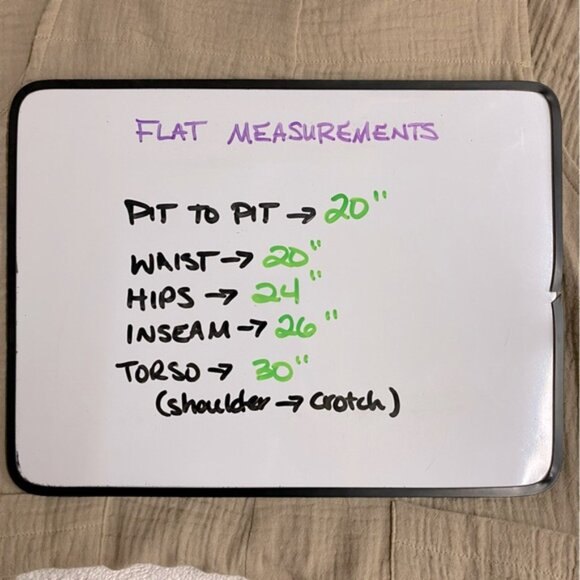 FLAT MEASUREMENTS
PIT TO PIT → 20"
WAIST → 20"
HIPS → 24"
INSEAM → 26"
TORSO → 30"
(shoulder → crotch)